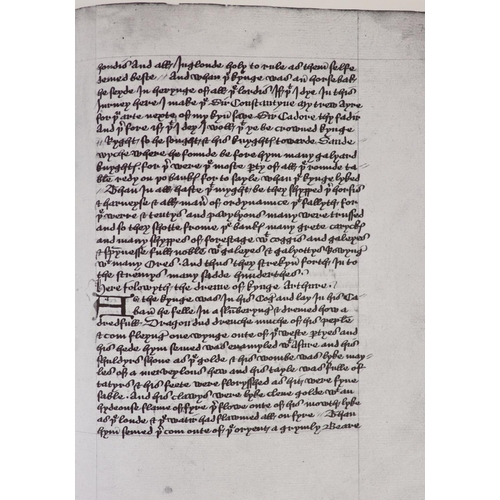 hondis And all Inglonde holy to rule as them selfe
demed beste / And whan þe kynge was an horsebak
he seyde In herynge of all þe lordis Iff þt I dye In this
Jurney here I make þe Sir Constantyne my trew Ayre
for þu arte nexte of my kyn save Sir Cadore thy fadir
And þerfore iff þt I dey I woll þt ye be crowned kynge
Ryght so he sought & his knyghtis towarde Sande
wyche where he founde be fore hym many galyard
knyghtis. for þer were þe moste party of all þe rounde ta
ble redy on þo bankis for to sayle whan þe kynge lyked
Than In all haste þt myght be they shypped þer horsis
& harneyse & all maner of ordynaunce þt fallyth for
þe werre & tentys and pavylyons many were trussed
and so they shotte frome þe bankis many grete caryckis
and many shyppes of forestage wt coggis and galeyes
& spynnesse full noble wt galeyes & galyottys Rowyng
wt many Ores. And thus they strekyn forth In to
the stremys many sadde hunderthes.
Here folowyth the dreme of kynge Arthure.
As the kynge was In his Cog and lay In his Ca
ban he felle in a slumberyng & dremed how a
dredfull Dragon dud drenche muche of his peple
& com fleyng one wynge oute of þe weste partyes and
his hede hym semed was enamyled wt Asure and his
shuldyrs shone as þe golde & his wombe was lyke may
les of a merveylous hew and his tayle was fulle of
tatyrs & his feete were florysshed as hit were fyne
sable. And his clawys were lyke clene golde & an
hydeouse flame of fyre þer flowe oute of his mowth lyke
as þe londe & þe watir had flawmed all on fyre / Than
hym semed þer com oute of þe oryent a grymly Beare